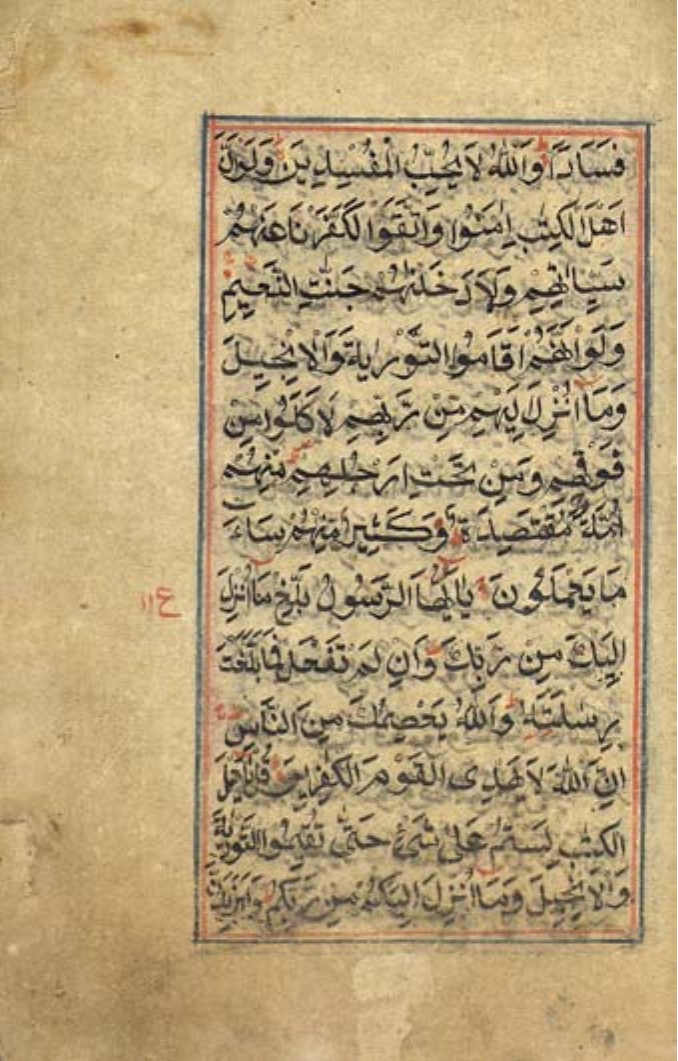 فَسَادًا وَاللّٰهُ لَا یُحِبُّ الْمُفْسِدِیْنَ وَلَوْاَنَّ
اَهْلَ الْكِتٰبِ اٰمَنُوْا وَاتَّقَوْا لَكَفَّرْنَا عَنْهُمْ
سَیِّاٰتِهِمْ وَلَاَدْخَلْنٰهُمْ جَنّٰتِ النَّعِیْمِ
وَلَوْ اَنَّهُمْ اَقَامُوا التَّوْرٰیةَ وَالْاِنْجِیْلَ
وَمَا اُنْزِلَ اِلَیْهِمْ مِّنْ رَّبِّهِمْ لَاَكَلُوْا مِنْ
فَوْقِهِمْ وَمِنْ تَحْتِ اَرْجُلِهِمْ مِنْهُمْ
اُمَّةٌ مُّقْتَصِدَةٌ وَكَثِیْرٌ مِّنْهُمْ سَاءَ
مَا یَعْمَلُوْنَ یٰاَیُّهَا الرَّسُوْلُ بَلِّغْ مَا اُنْزِلَ
ع ١١
اِلَیْكَ مِنْ رَّبِّكَ وَاِنْ لَمْ تَفْعَلْ فَمَا بَلَّغْتَ
رِسٰلَتَهٗ وَاللّٰهُ یَعْصِمُكَ مِنَ النَّاسِ
اِنَّ اللّٰهَ لَا یَهْدِی الْقَوْمَ الْكٰفِرِیْنَ قُلْ یٰاَهْلَ
الْكِتٰبِ لَسْتُمْ عَلٰی شَیْءٍ حَتّٰی تُقِیْمُوا التَّوْرٰیةَ
وَالْاِنْجِیْلَ وَمَا اُنْزِلَ اِلَیْكُمْ مِّنْ رَّبِّكُمْ وَلَیَزِیْدَنَّ